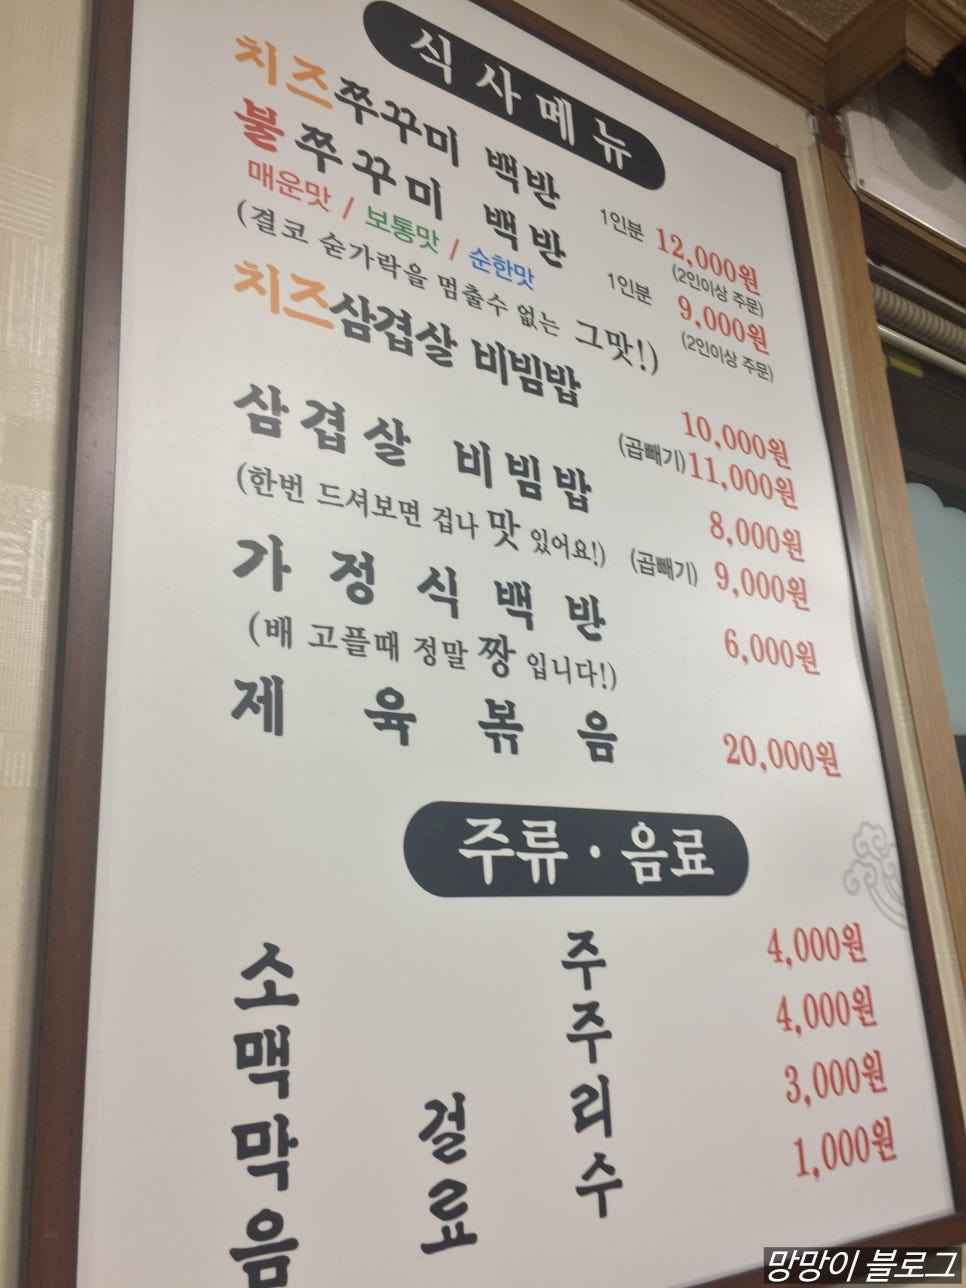 식사메뉴
치즈쭈꾸미 백반 1인분 12,000원
(2인이상 주문)
불쭈꾸미 백반 1인분 9,000원
(2인이상 주문)
매운맛 / 보통맛 / 순한맛
(결코 숟가락을 멈출수 없는 그맛!)
치즈삼겹살 비빔밥 10,000원
(곱빼기)11,000원
삼겹살 비빔밥 8,000원
(한번 드셔보면 겁나 맛 있어요!) (곱빼기) 9,000원
가정식백반 6,000원
(배 고플때 정말 짱 입니다!)
제육볶음 20,000원
주류·음료
소주 4,000원
맥주 4,000원
막걸리 3,000원
음료수 1,000원
망망이 블로그